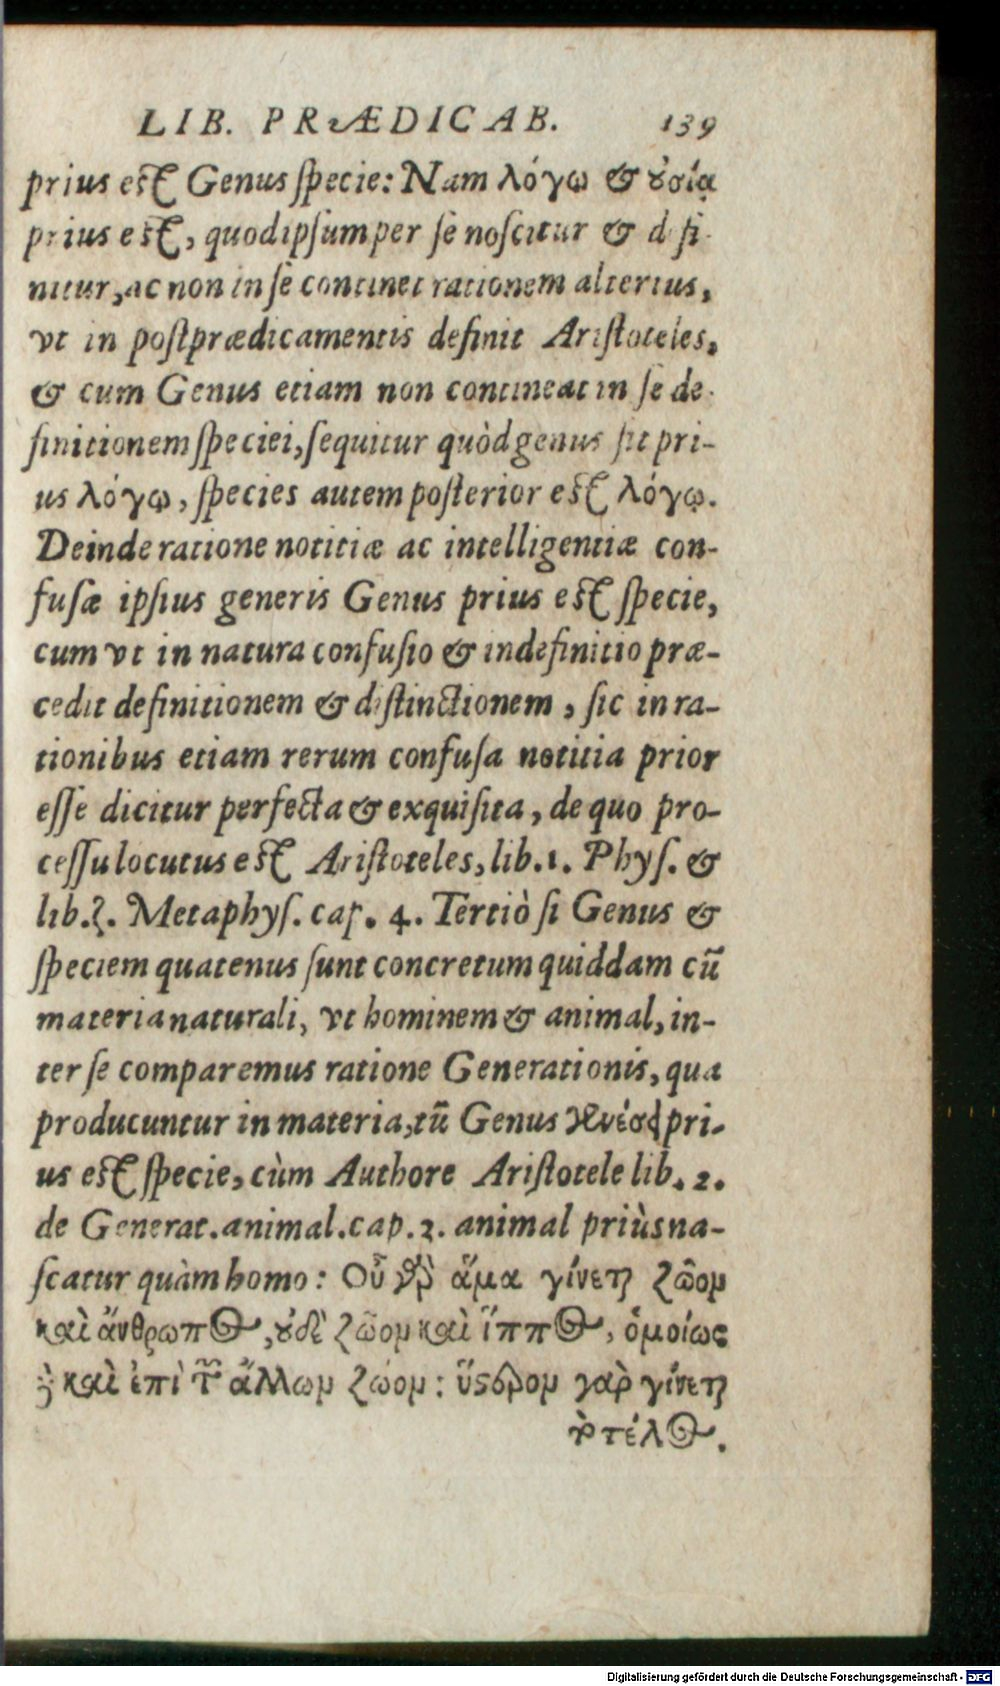 LIB. PRÆDICAB. 139
prius est Genus specie: Nam λόγῳ & ȣσίᾳ
prius est, quod ipsum per se noscitur & d fi-
nitur, ac non in se continet rationem alterius,
vt in postprædicamentis definit Aristoteles,
& cum Genus etiam non contineat in se de-
finitionem speciei, sequitur quòd genus sit pri-
us λόγῳ, species autem posterior est λόγῳ.
Deinde ratione notitiæ ac intelligentiæ con-
fusæ ipsius generis Genus prius est specie,
cum vt in natura confusio & indefinitio præ-
cedit definitionem & distinctionem, sic in ra-
tionibus etiam rerum confusa notitia prior
esse dicitur perfecta & exquisita, de quo pro-
cessu locutus est Aristoteles, lib. 1. Phys. &
lib. ζ. Metaphys. cap. 4. Tertiò si Genus &
speciem quatenus sunt concretum quiddam cū
materia naturali, vt hominem & animal, in-
ter se comparemus ratione Generationis, qua
producuntur in materia, tū Genus γενέσει pri-
us est specie, cùm Authore Aristotele lib. 2.
de Generat. animal. cap. 3. animal priùs na-
scatur quàm homo: Οὐ γὰρ ἅμα γίνεται ζῶον
καὶ ἄνθρωπος, ȣδὲ ζῶον καὶ ἵππος, ὁμοίως
δὲ καὶ ἐπὶ τῶν ἄλλων ζώον: ὕστερον γὰρ γίνεται
τὸ τέλος.
Digitalisierung gefördert durch die Deutsche Forschungsgemeinschaft - DFG